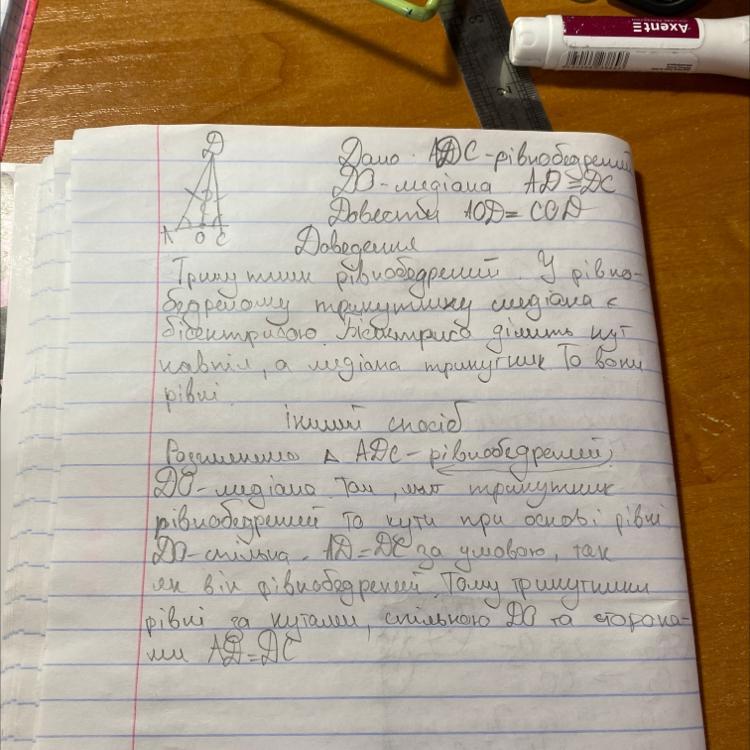 Axent
3
2
Д
А О С
Дано: АДС-рівнобедрений
ДО-медіана АД≅ДС
Довести АОД= СОД
Доведення
Трикутник рівнобедрений. У рівно-
бедреному трикутнику медіана є
бісектрисою. Бісектриса ділить кут
навпіл, а медіана трикутник То вони
рівні.
інший спосіб
Розглянемо △ АДС-рівнобедрений.
ДО-медіана. Так, що трикутник
рівнобедрений то кути при основі рівні
ДО-спільна. АД=ДС за умовою, так
як він рівнобедрений. Тому трикутники
рівні за кутами, спільною ДО та сторона-
ми АД=ДС